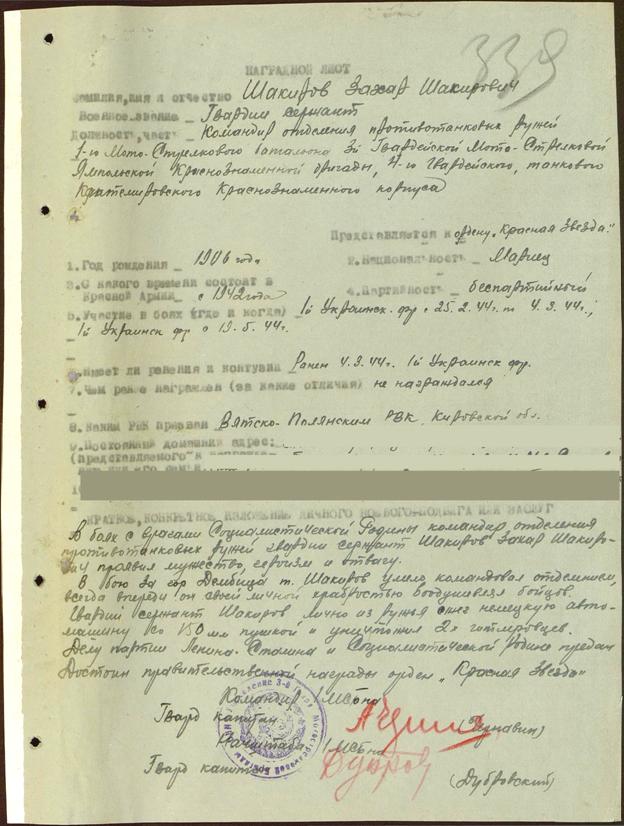 339
НАГРАДНОЙ ЛИСТ
Фамилия, имя и отчество Шакиров Захар Шакирович
Военное звание Гвардии сержант
Должность, часть Командир отделения противотанковых ружей
1-го Мото-Стрелкового батальона 3й Гвардейской Мото-Стрелковой
Ямпольской Краснознаменной бригады, 4-го Гвардейского, танкового
Кантемировского Краснознаменного корпуса
Представляется к ордену „Красная Звезда“
1. Год рождения 1906 года 2. Национальность Мариец
3. С какого времени состоит в
Красной Армии с 1942 года 4. Партийность беспартийный
5. Участие в боях (где и когда) 1й Украинск. фр с 25.2.44г. п 4.3.44г.;
1й Украинск фр с 19.5.44г.
6. Имеет ли ранения и контузии Ранен 4.3.44г. 1й Украинск фр.
7. Чем ранее награжден (за какие отличия) не награждался
8. Каким РВК призван Вятско-Полянским РВК, Кировской обл.
9. Постоянный домашний адрес:
(представляемого к
КРАТКОЕ, КОНКРЕТНОЕ ИЗЛОЖЕНИЕ ЛИЧНОГО БОЕВОГО ПОДВИГА ИЛИ ЗАСЛУГ
В боях с врагами Социалистической Родины командир отделения
противотанковых ружей гвардии сержант Шакиров Захар Шакиро-
вич проявил мужество, героизм и отвагу.
В бою за гор Дембица т. Шакиров умело командовал отделением,
всегда впереди он своей личной храбростью воодушевлял бойцов.
Гвардии сержант Шакиров лично из ружья сжег немецкую авто-
машину со 150 мм пушкой и уничтожил 2х гитлеровцев.
Делу партии Ленина-Сталина и Социалистической Родине предан
Достоин правительственной награды орден „Красная Звезда“
Командир 1МСбна
Гвард капитан (Чернавин)
Начштаба 1МСбна
Гвард капитан (Дубровский)